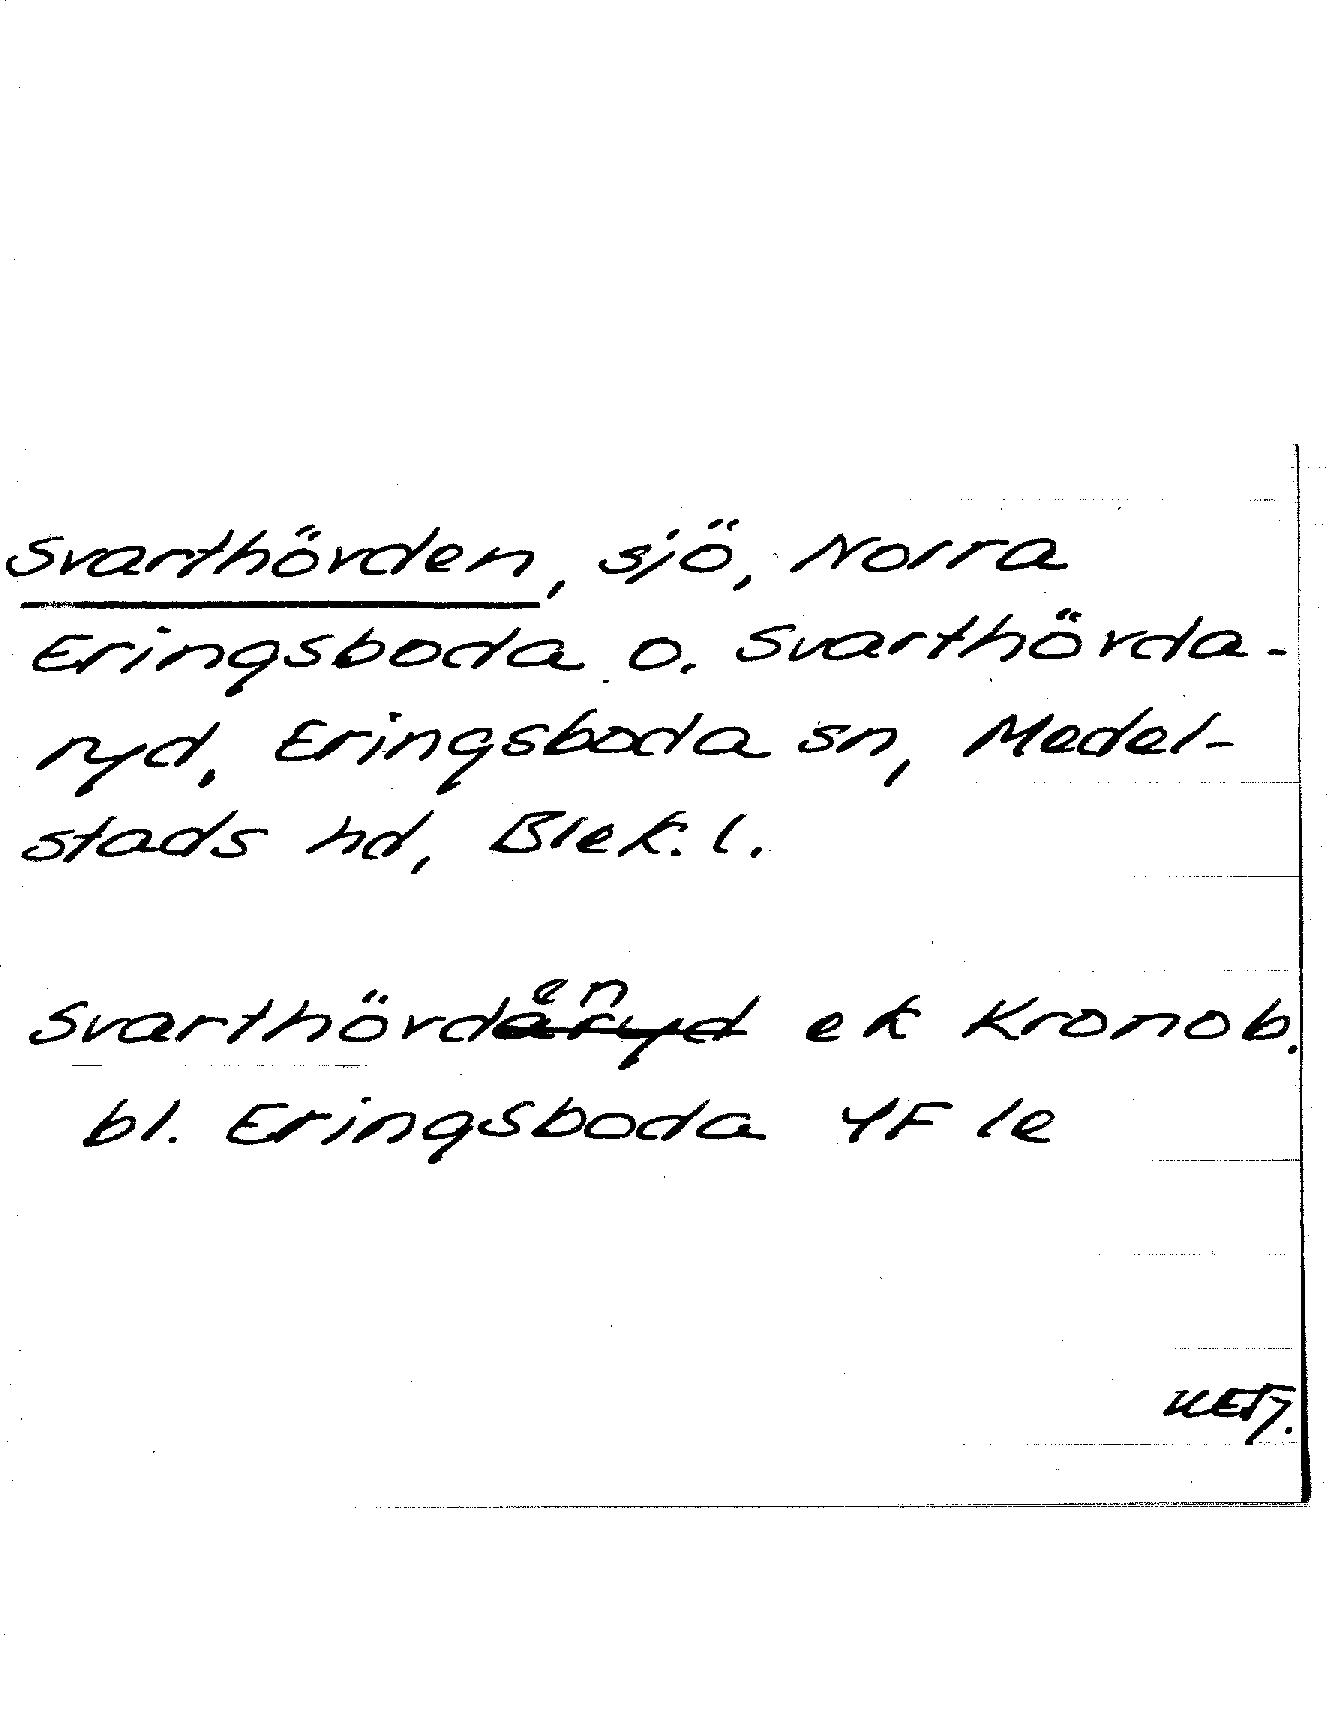 Svarthövden, sjö, Norra
Eringsboda o. Svarthövda-
ryd, Eringsboda sn, Medel-
stads hd, Blek. l.
Svarthövden ek Kronob.
bl. Eringsboda 4F le